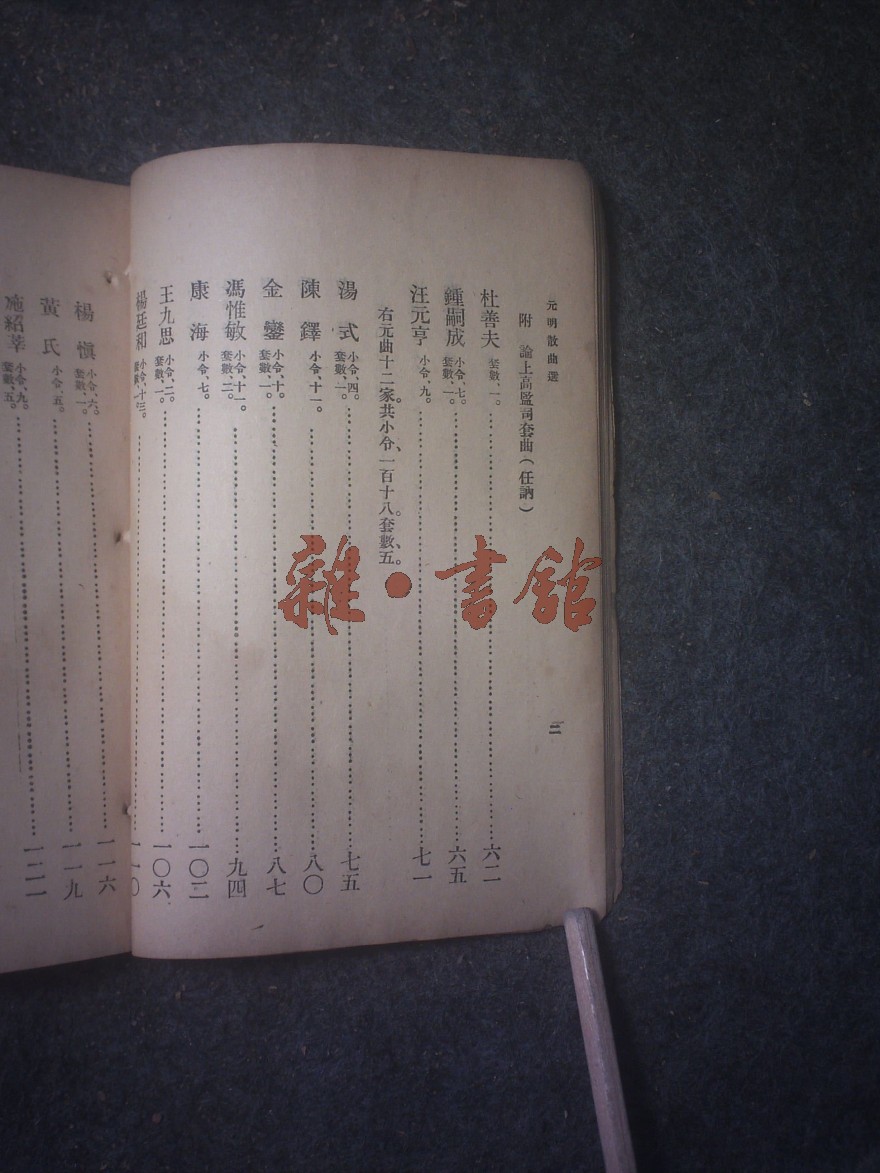 元明散曲選
二
附 論上高監司套曲(任訥)
杜善夫 套數、一。……六二
鍾嗣成 小令、七。套數、一。……六五
汪元亨 小令、九。……七一
右元曲十二家。共小令、一百十八。套數、五。
湯式 小令、四。套數、一。……七五
陳鐸 小令、十一。……八〇
金鑾 小令、十。套數、一。……八七
馮惟敏 小令、十一。套數、二。……九四
康海 小令、七。……一〇二
王九思 小令、二。套數、一。……一〇六
楊廷和 小令、十三。套數、一。……一一〇
楊慎 小令、六。套數、一。……一一六
黃氏 小令、五。……一一九
施紹莘 小令、九。套數、五。……一二一
雜·書館